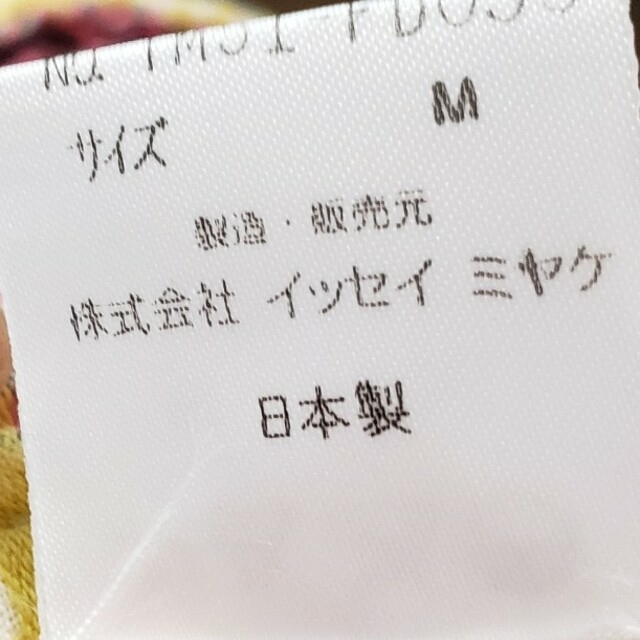 サイズ M
製造・販売元
株式会社 イッセイ ミヤケ
日本製